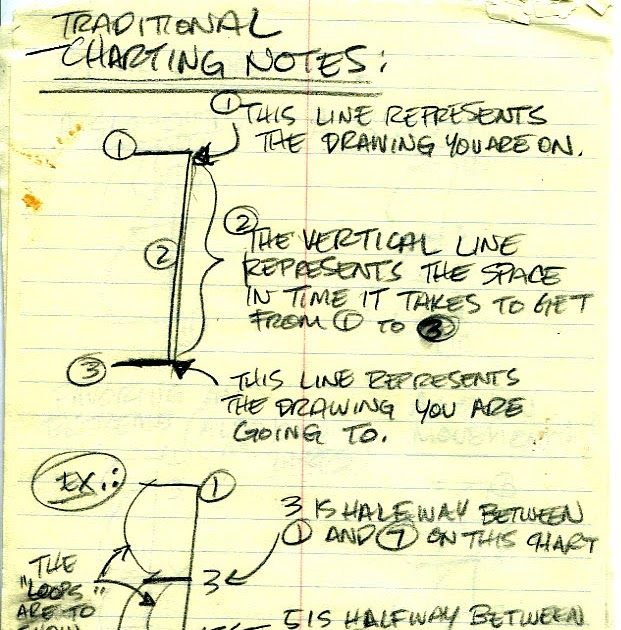 TRADITIONAL
CHARTING NOTES:
① THIS LINE REPRESENTS
THE DRAWING YOU ARE ON.
①
②
② THE VERTICAL LINE
REPRESENTS THE SPACE
IN TIME IT TAKES TO GET
FROM ① TO ③
③
THIS LINE REPRESENTS
THE DRAWING YOU ARE
GOING TO.
EX.:
①
3 IS HALFWAY BETWEEN
① AND ⑦ ON THIS CHART
THE
"LOOPS"
ARE TO
3
5 IS HALFWAY BETWEEN